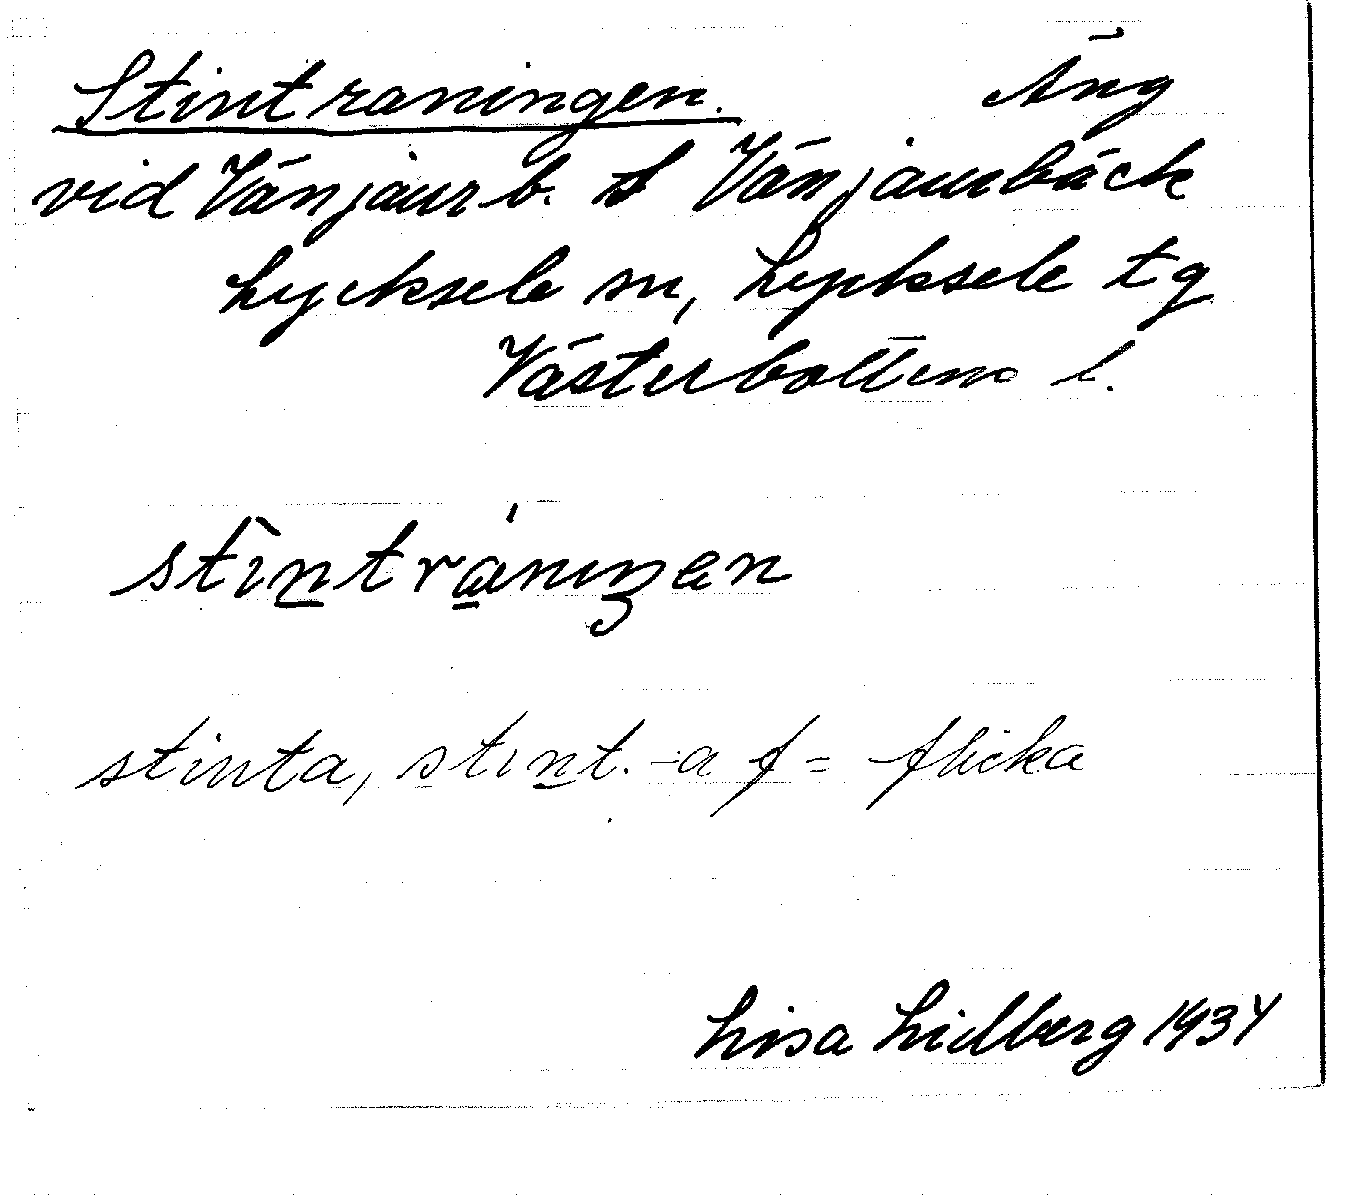 Stintraningen. Äng
vid Vänjaurb. Vänjaurbäck
Lycksele sn, Lycksele tg
Västerbottens l.
stintråniŋen
stinta, stint. -a f = flicka
Lisa Lidberg 1934